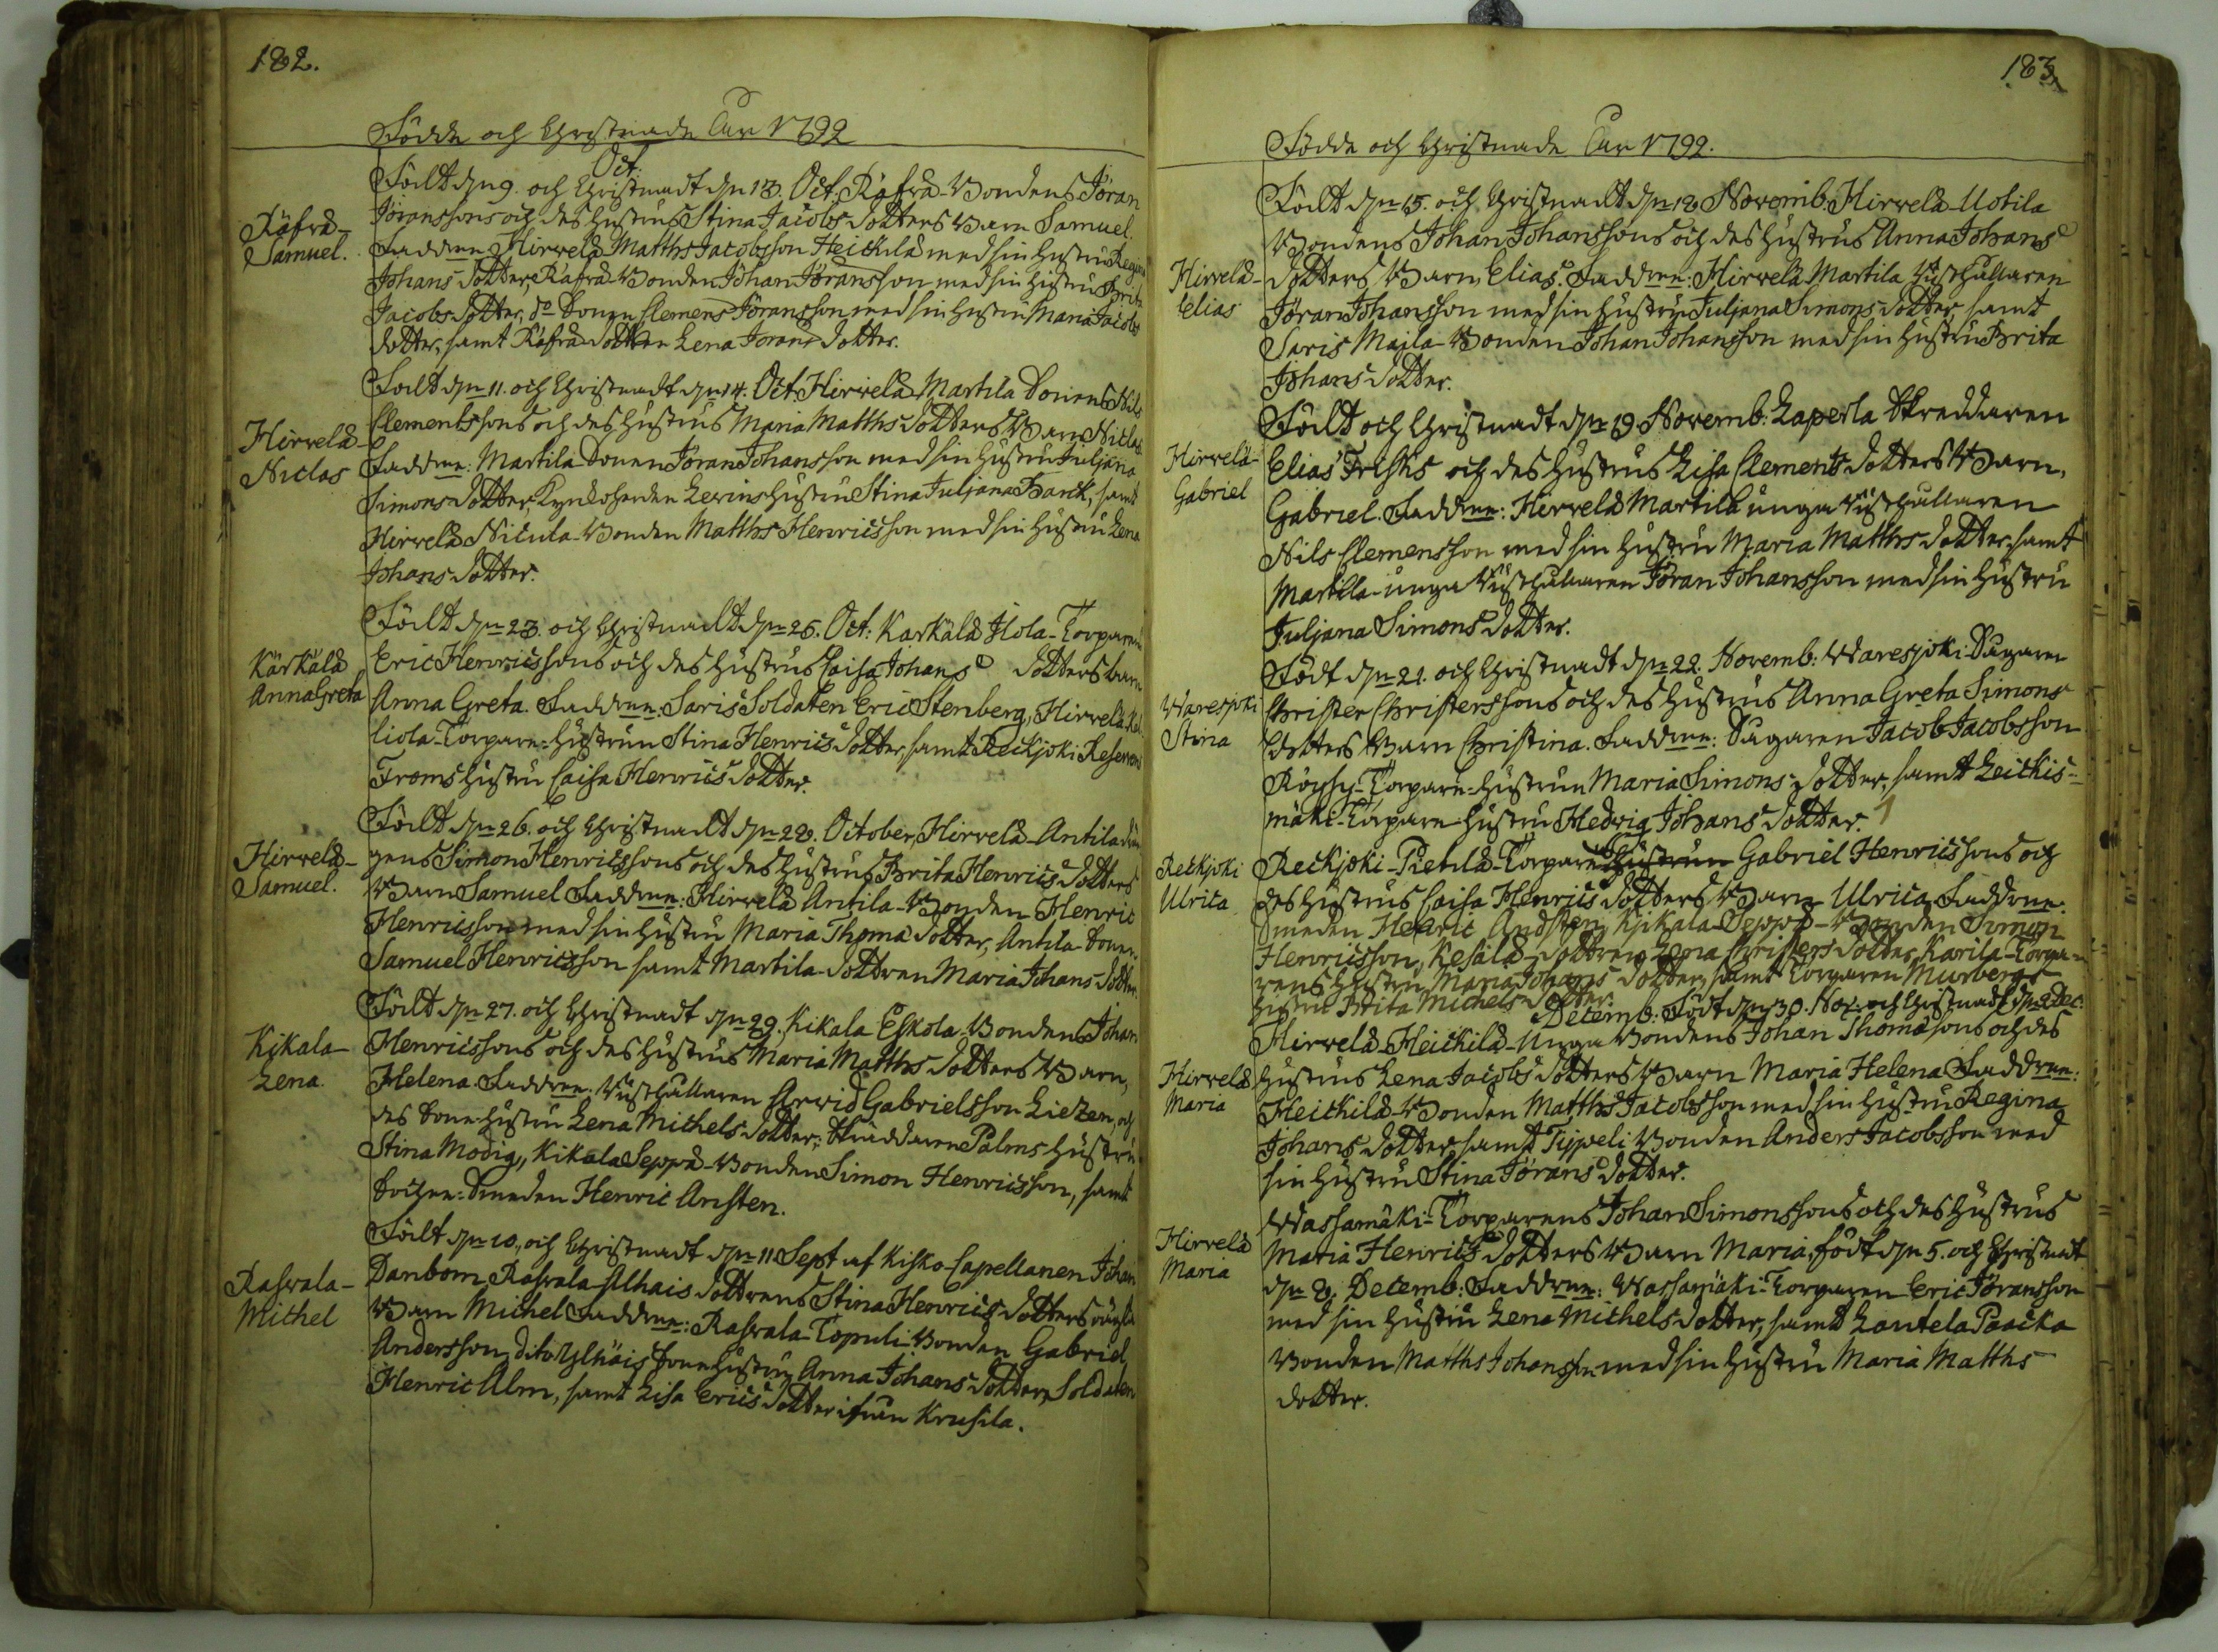 182.
Födde och Christnade Åår 1792
Oct.
Födt d. 9. och Christnadt d. 13. Oct. Räfvä-Bondens Jöran
Räfvä-
Samuel.
Jöranssons och des hustrus Stina Jacobs dotters Barn Samuel.
Faddrar: Hirvelä Matths Jacobsson Heickilä med sin hustru Regina
Johans dotter, Räfvä-Bonden Johan Jöransson med sin hustru Brita
Jacobs dotter, do Sonen Clemens Jöransson med sin hustru Maria Jacobs
dotter, samt Räfvä dottren Lena Jörans dotter.
Födt d. 11. och Christnadt d. 14. Oct. Hirvelä Martila Sonens Nils
Hirvelä-
Niclas
Clementssons och des hustrus Maria Matths dotters Barn Niclas
Faddrar: Martila Sonen Jöran Johansson med sin hustru Juljana
Simons dotter, Levins hustru Stina Juljana Barck, samt
Hirvelä Nicula-Bonden Matths Henricsson med sin hustru Lena
Johans dotter.
Födt d. 23. och Christnadt d. 25. Oct: Karkälä Jlola-Torparen
Kärkälä
Anna Greta
Eric Henricssons och des hustrus Caisa Johans dotters barn
Anna Greta. Faddrar: Saris Soldaten Eric Stenberg, Hirvelä
liola-Torpare-hustrun Stina Henrics dotter, samt Reckjoki Reserven
Froms hustru Caisa Henrics dotter.
Födt d. 26. och Christnadt d. 28. October, Hirvelä-Antila drän
Hirvelä-
Samuel.
gens Simon Henricssons och des hustrus Brita Henrics dotters
Barn Samuel Faddrar: Hirvelä Antila-Bonden Henric
Henricsson med sin hustru Maria Thoma dotter, Antila Sonen
Samuel Henricsson samt Martila-dottren Maria Johans dotter.
Födt d. 27. och Christnadt d. 29. Kikala Eskola-Bondens Johan
Kikala-
Lena.
Henricssons och des hustrus Maria Matths dotters Barn,
Helena. Faddrar: Rusthållaren Arvid Gabrielsson Liezen, och
des Sone-hustru Lena Michels dotter: Skräddaren Palms hustru
Stina Modig, Kikala Seppä-Bonden Simon Henricsson, samt
Sockne-Smeden Henric Ansten.
Födt d. 10., och Christnadt d. 11 Sept af Kisko-Capellanen Johan
Rasvala-
Michel
Danbom, Rasvala-Alhais dottrens Stina Henrics-dotters oägta
Barn Michel Faddrar: Rasvala-Topuli-Bonden Gabriel
Andersson, dito Ylhäis Sone hustru Anna Johans dotter, Soldaten
Henric Alm, samt Lisa Erics dotter ifrån Krusila.
183.
Födde och Christnade Åår 1792.
Födt d. 15. och Christnadt d. 18 Novemb. Hirvelä-Uotila
Bondens Johan Johanssons och des hustrus Anna Johans
Hirvelä-
Elias
dotters Barn, Elias. Faddrar: Hirvelä Martila Rusthållaren
Jöran Johansson med sin hustru Juljana Simons dotter, samt
Saris Majla-Bonden Johan Johansson med sin hustru Brita
Johans dotter.
Födt och Christnadt d. 19 Novemb: Laperla Skreddaren
Hirvelä-
Gabriel
Elias Frisks och des hustrus Lisa Clements dotters Barn,
Gabriel. Faddrar: Hirvelä Martila unga Rusthållaren
Nils Clemensson med sin hustru Maria Matths dotter, samt
Martila-unga Rusthållaren Jöran Johansson med sin hustru
Juljana Simons dotter.
Födt d. 21. och Christnadt d. 22. Novemb: Waresjoki-Sågaren
Waresjoki
Stina
Christer Christerssons och des hustrus Anna Greta Simons
dotters Barn Christina. Faddrar: Sågaren Jacob Jacobsson
Torpare-hustrun Maria Simons-dotter, samt Leickis-
mäki-Torpare hustru Hedvig Johans dotter.
Reckjoki
Ulrica
Reckjoki-Pietilä-Torparens Gabriel Henricssons och
des hustrus Caisa Henrics dotters Barn Ulrica Faddrar:
Smeden Henric Andsten, Kjikala-Seppä-Bonden Simon
Henricsson, Kesälä-dottren Lena Christers dotter, Karila-Torpa-
rens hustru Maria Johans dotter, samt Torparen Murbergs
hustru Brita Michels dotter.
Decemb: Födt d. 30. Nov. och Christnadt d. 2 Dec.
Hirvelä-Heickilä-Unga Bondens Johan Thomassons och des
Hirvelä
Maria
hustrus Lena Jacobs dotters Barn Maria Helena Faddrar:
Heickilä-Bonden Matths Jacobsson med sin hustru Regina
Johans dotter, samt Tippeli Bonden Anders Jacobsson med
sin hustru Stina Jörans dotter.
Wassamäki-Torparens Johan Simonssons och des hustrus
Hirvelä
Maria
Maria Henrics dotters Barn Maria, födt d. 5. och Christnadt
d. 8. Decemb: Faddrar: Wassamäki-Torparen Eric Jöransson
med sin hustru Lena Michels dotter, samt Lautela Paacka
Bonden Matths Johansson med sin hustru Maria Matths
dotter.